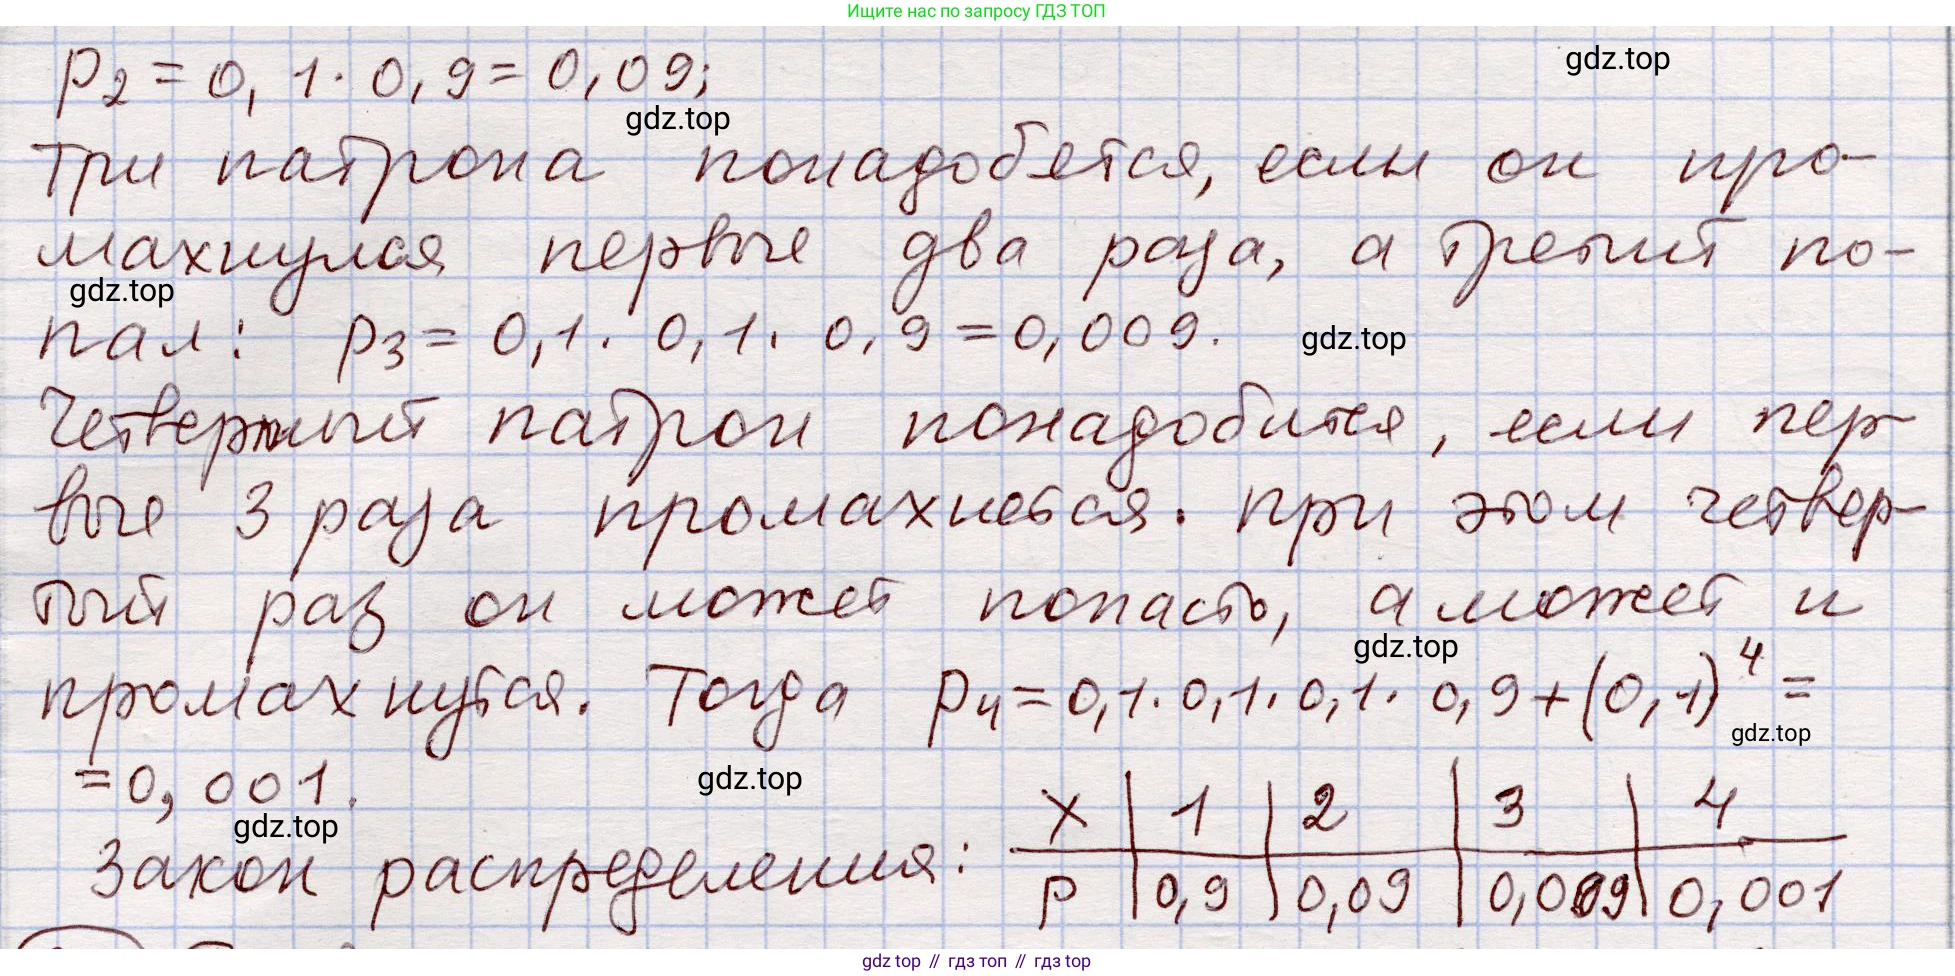 Ищите нас по запросу ГДЗ ТОП
p₂ = 0,1 · 0,9 = 0,09;
gdz.top
gdz.top
Три патрона понадобятся, если он про-
махнулся первые два раза, а третий по-
gdz.top
пал: p₃ = 0,1 · 0,1 · 0,9 = 0,009.
gdz.top
Четвертый патрон понадобится, если пер-
вые 3 раза промахнется. При этом четвер-
тый раз он может попасть, а может и
gdz.top
промахнуться. Тогда p₄ = 0,1 · 0,1 · 0,1 · 0,9 + (0,1)⁴ =
gdz.top
= 0,001.
gdz.top
gdz.top
Закон распределения:
X | 1 | 2 | 3 | 4
P | 0,9 | 0,09 | 0,009 | 0,001
gdz top // гдз топ // гдз top